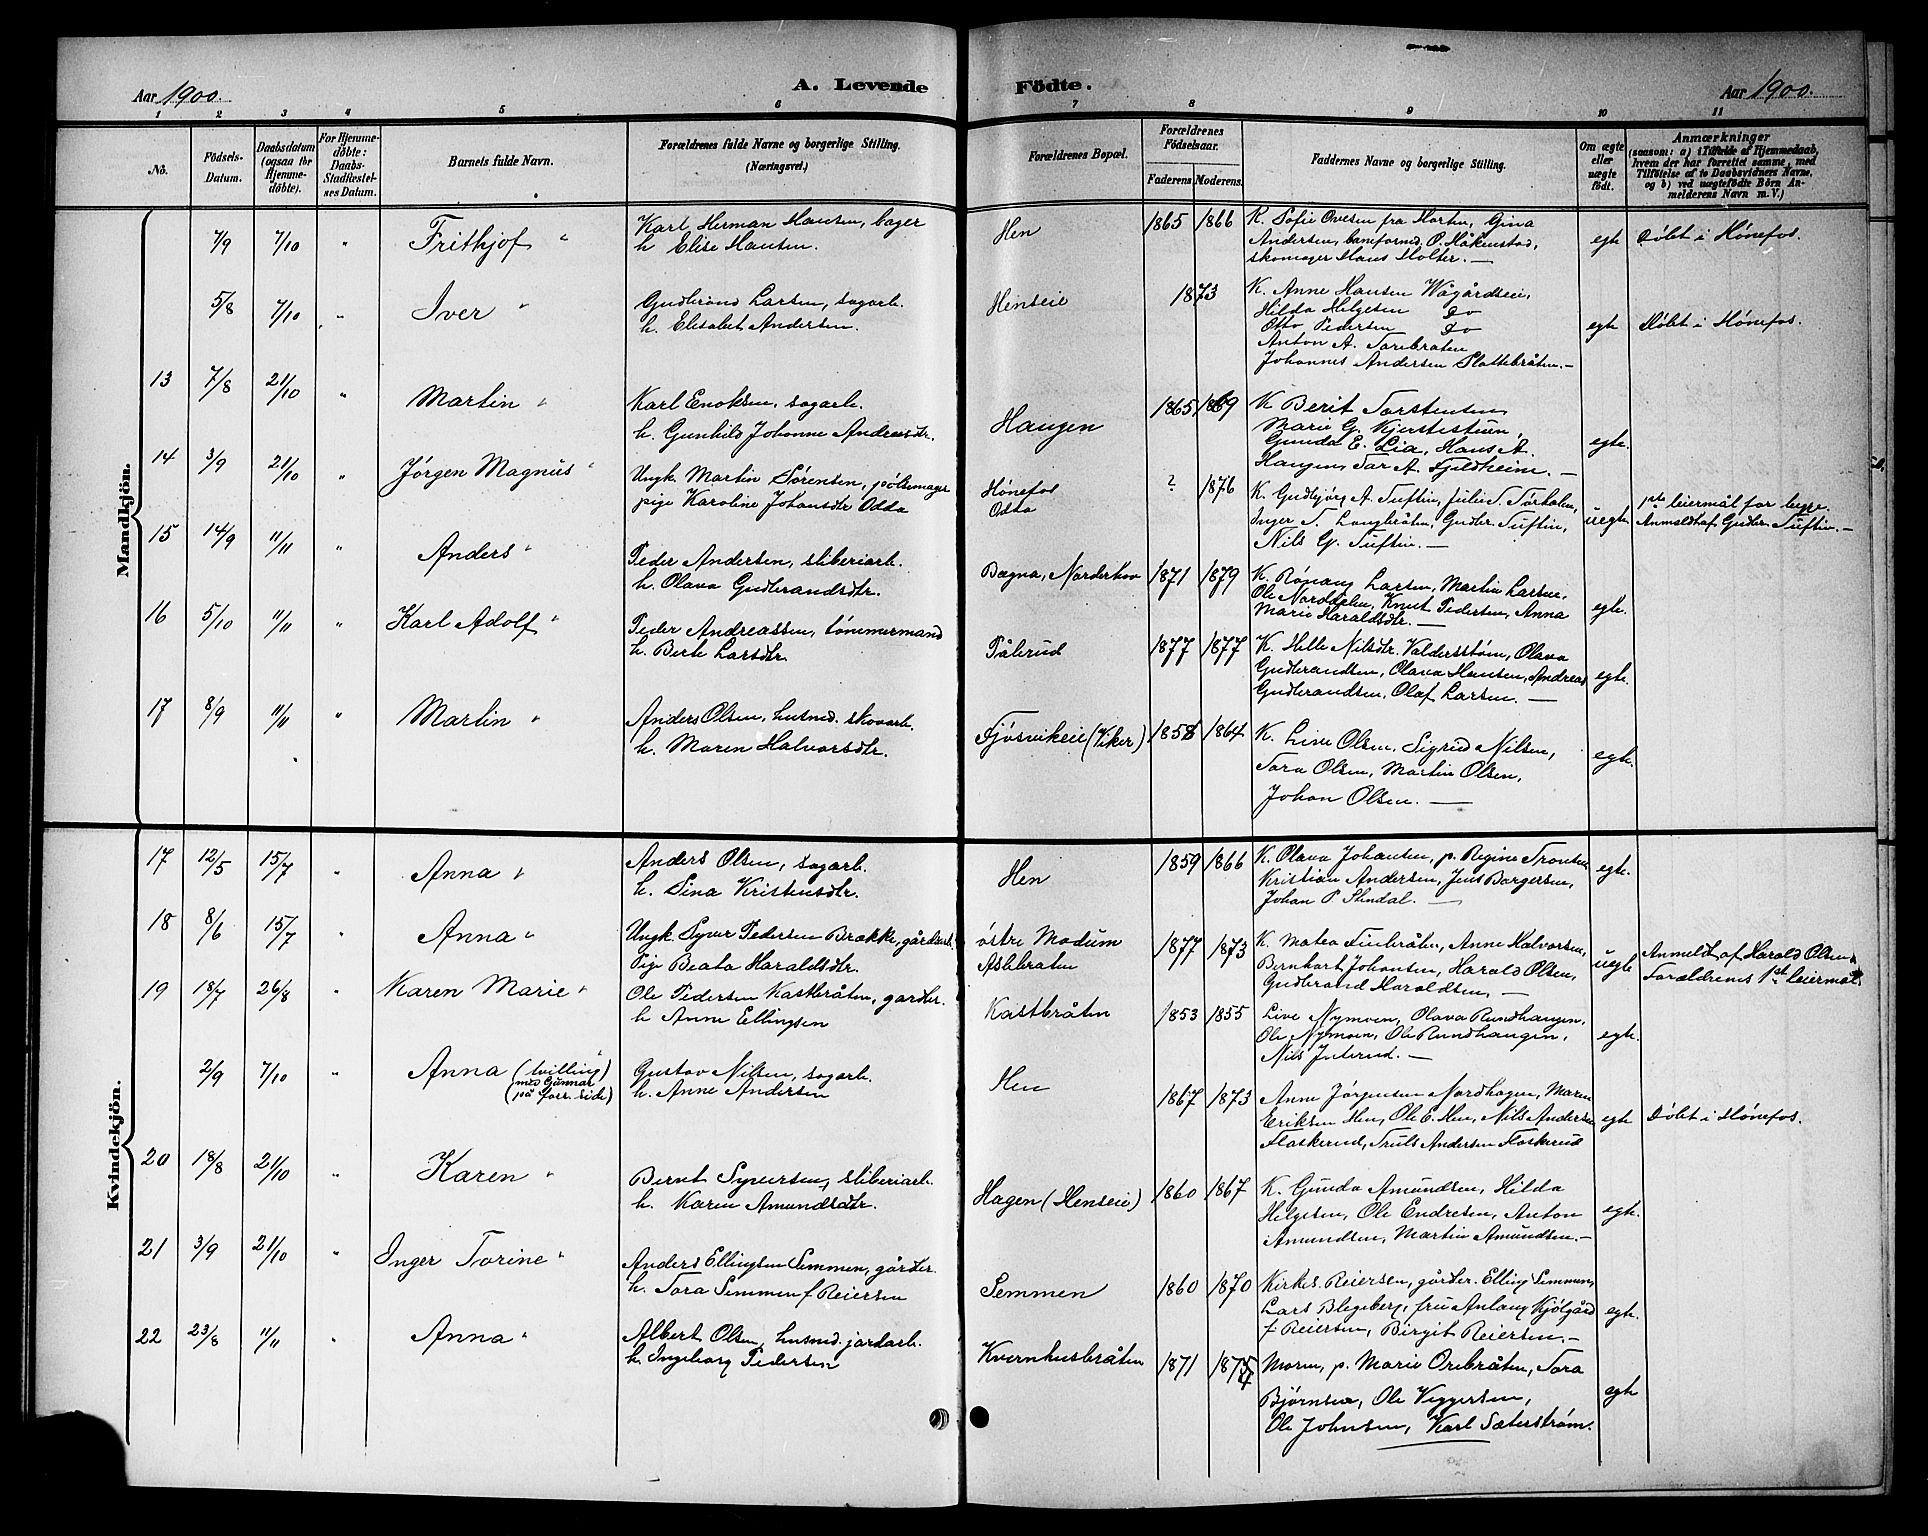 Aar 1900.
A. Levende Födte.
Aar 1900.
1 2 3 4 5 6 7 8 9 10 11
No.
Födsels-Datum.
Daabsdatum (ogsaa for Hjemme-døbte).
For Hjemme-døbte: Daabs-Stadfæstel-ses Datum.
Barnets fulde Navn.
Forældrenes fulde Navne og borgerlige Stilling. (Næringsvei.)
Forældrenes Bopæl.
Forældrenes Födselsaar.
Faderens. Moderens.
Faddernes Navne og borgerlige Stilling.
Om ægte eller uægte födt.
Anmærkninger
(saasom: a) i Tilfælde af Hjemmedaab, hvem der har forrettet samme, med Tilföielse af to Daabsvidners Navne, og b) ved uægtefödte Börn An-melderens Navn m. V.)
Mandkjön.
7/9 7/10 " Frithjof "
Karl Herman Hansen, bager
h. Elise Hansen.
Hen 1865 1866
K. Sofie Ovesen fra Horten, Gina
Andersen, baneformd. P. Håkenstad,
skomager Hans Holter. —
egte Döbt i Hönefos.
5/8 7/10 " Iver "
Gudbrand Larsen, sagarb.
h. Elisabet Andersen.
Henseie 1873
K. Anne Hansen Vågårdseie,
Hilda Helgesen Do
Otto Pedersen Do
Anton A. Torebråten
Johannes Andersen Plattebråten. —
egte Döbt i Hönefos.
13 7/8 21/10 " Martin "
Karl Enoksen, sagarb.
h. Gunhild Johanne Andreasdtr.
Haugen 1865 1869
K. Berit Torstensen,
Marie G. Kjerstistuen,
Gunda E. Lia, Hans A.
Haugen, Tor A. Fjeldheim. —
egte.
14 3/9 21/10 " Jörgen Magnus "
Ungk. Martin Sörensen, pölsemager
pige Karoline Johansdtr Odda
Hönefos
Odda
? 1876
K. Gudbjörg A. Tuftin, Julie T. Törhalm,
Inger T. Langbråten, Gudbr. Tuftin,
Nils G. Tuftin. —
uegte. 1ste leiermål for begge.
Anmeldt af Gudbr. Tuftin. —
15 14/9 11/11 " Anders "
Peder Andersen, sliberiarb.
h. Olava Gudbrandsdtr.
Bægna, Norderhov 1871 1879
K. Rönaug Larsen, Martin Larsen,
Ole Norddalen, Knut Pedersen, Anna
Marie Haraldsdtr. —
egte.
16 5/10 11/11 " Karl Adolf "
Peder Andreassen, tömmermand
h. Berte Larsdtr.
Pålerud 1877 1877
K. Helle Nilsdtr. Valdersstöm, Olava
Gudbrandsen, Olava Hansen, Andreas
Gudbrandsen, Olaf Larsen. —
egte.
17 8/9 11/11 " Martin "
Anders Olsen, husmd. skovarb.
h. Maren Halvorsdtr.
Fjösvikeie (Viker) 1858 1864
K. Live Olsen, Sigrid Nilsen,
Tora Olsen, Martin Olsen,
Johan Olsen. —
egte.
Kvindekjön.
17 12/5 15/7 " Anna "
Anders Olsen, sagarb.
h. Sina Kristensdtr.
Hen 1859 1866
K. Olava Johansen, p. Regine Tronsen
Kristian Andersen, Jens Borgersen,
Johan P. Stendal. —
egte.
18 8/6 15/7 " Anna "
Ungk. Syver Pedersen Brække, gårdarb.
Pige Beata Haraldsdtr.
östre Modum
Aslebraten
1877 1873
K. Matea Finbråten, Anne Halvorsen,
Bernhart Johansen, Harald Olsen,
Gudbrand Haraldsen. —
uegte Anmeldt af Harald Olsen.
Forældrenes 1ste leiermål.
19 18/7 26/8 " Karen Marie "
Ole Pedersen Kastbråten, gårdbr.
h. Anne Ellingsen
Kastbråten 1853 1855
Live Nymoen, Olava Rundhaugen,
Ole Nymoen, Ole Rundhaugen,
Nils Juterud. —
egte.
2/9 7/10 " Anna (tvilling
med Gunnar
på forr. side)
Gustav Nilsen, sagarb.
h. Anne Andersen
Hen 1867 1873
Anne Jörgensen Nordhagen, Maren
Eriksen Hen, Ole E. Hen, Nils Andersen
Flaskerud, Truls Andersen Flaskerud
egte Döbt i Hönefos.
20 18/8 21/10 " Karen "
Bernt Syversen, sliberiarb.
h. Karen Amundsdtr.
Hagen (Henseie) 1860 1867
K. Gunda Amundsen, Hilda
Helgesen, Ole Endresen, Anton
Amundsen, Martin Amundsen. —
egte.
21 3/9 21/10 " Inger Torine "
Anders Ellingsen Semmen, gårdbr.
h. Tora Semmen f Reiersen
Semmen 1860 1870
Kirkes. Reiersen, gårdbr. Elling Semmen,
Lars Blegeberg, fru Anlaug Kjölgård
f. Reiersen, Birgit Reiersen. —
egte.
22 23/8 11/11 " Anna "
Albert Olsen, husmd. jordarb.
h. Ingeborg Pedersen
Kvernhusbråten 1871 1874
Moren, p. Marie Orebråten, Tora
Björnsen, Ole Viggersen,
Ole Johnsen, Karl Sæterström.
egte